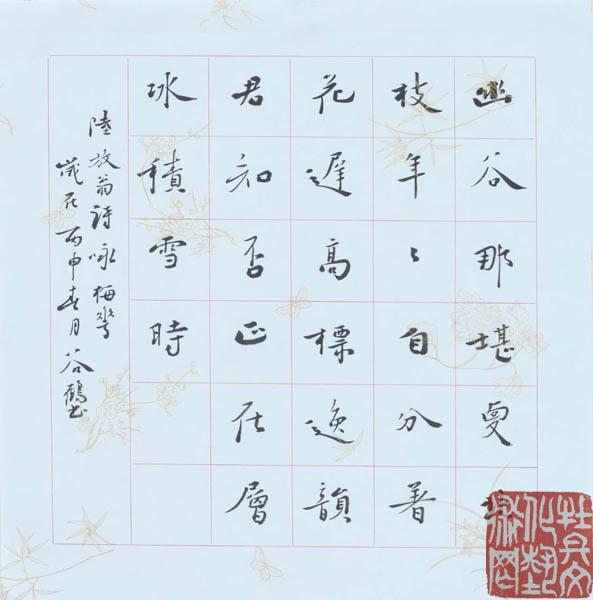 幽谷那堪更
枝年〻自分著
花遲高標逸韻
君知否正在層
冰積雪時
陸放翁詩咏梅華
歲在丙申春月谷鶴書